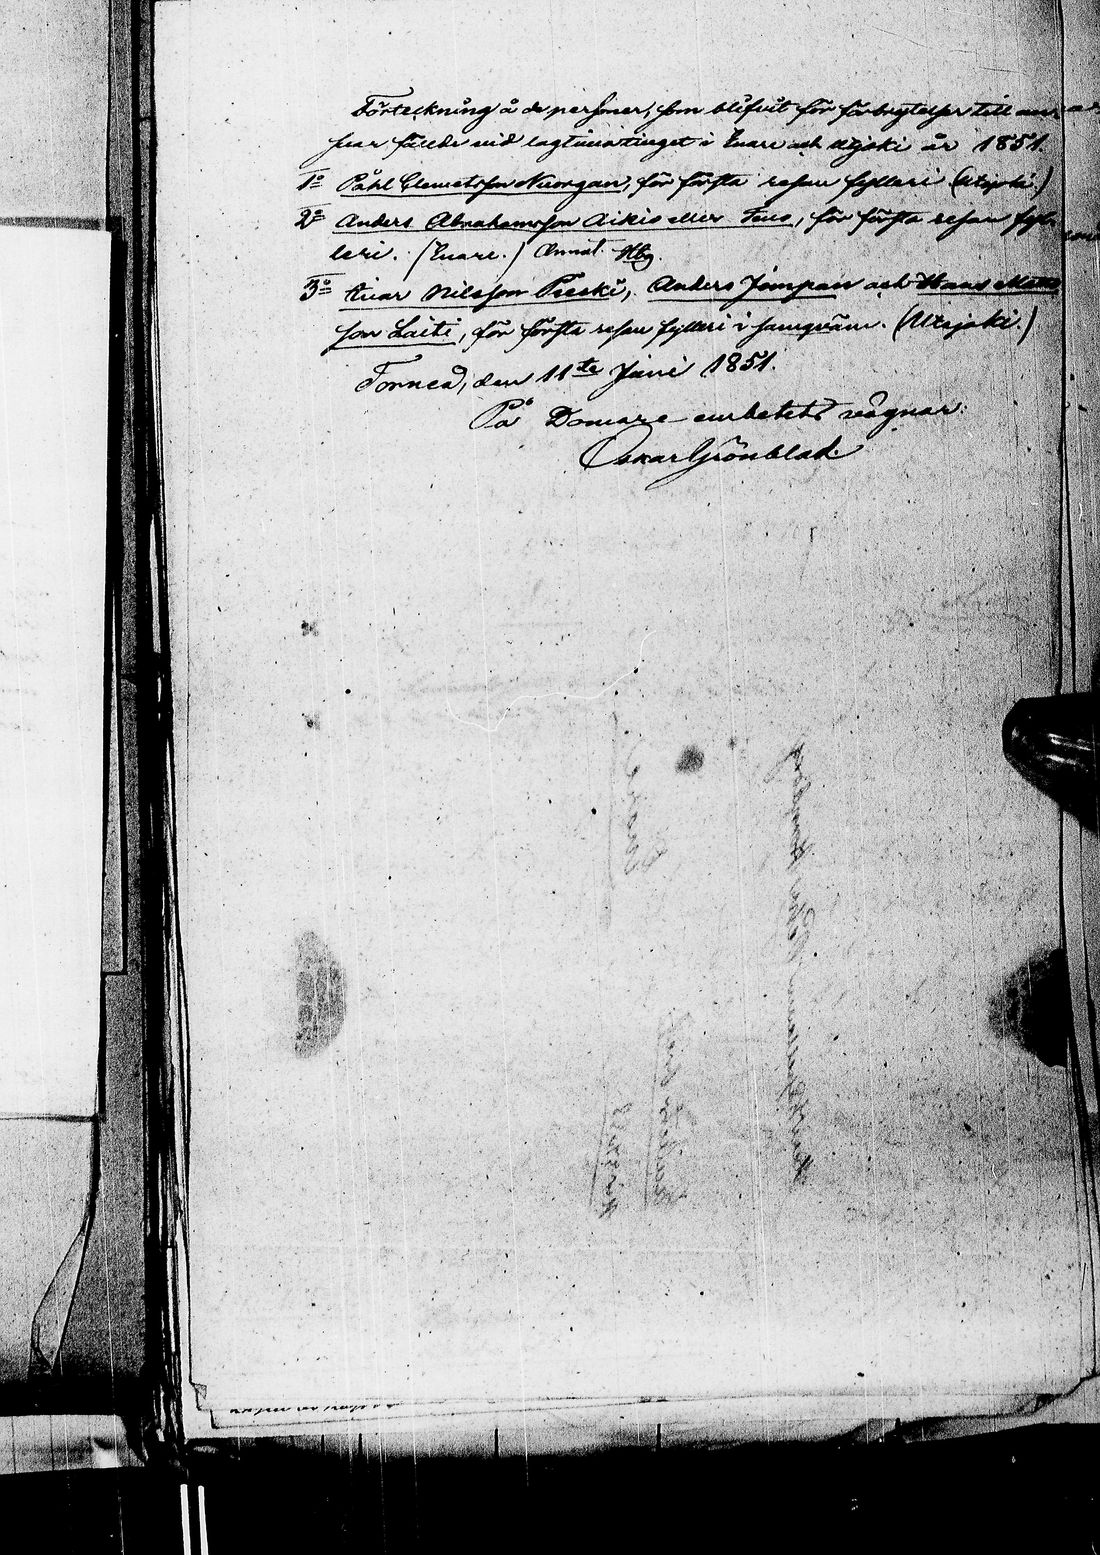 Förteckning å de personer, som blifvit för förbrytelser till an-
svar fälde vid lagtima tinget i Enare och Utsjoki år 1851.
1o Påhl Clemetsson Nuorgan, för första resan fylleri (Utsjoki.)
2o Anders Abrahamsson Aikio eller Tens, för första resan fyl-
leri. (Enare.)
3o Ivar Nilsson Pieski, Anders Jompan och Hans Mats-
son Laiti, för första resan fylleri i samqväm. (Utsjoki.)
Torneå, den 11te Juni 1851.
På Domare-embetets vägnar:
Oskar Grönblad.